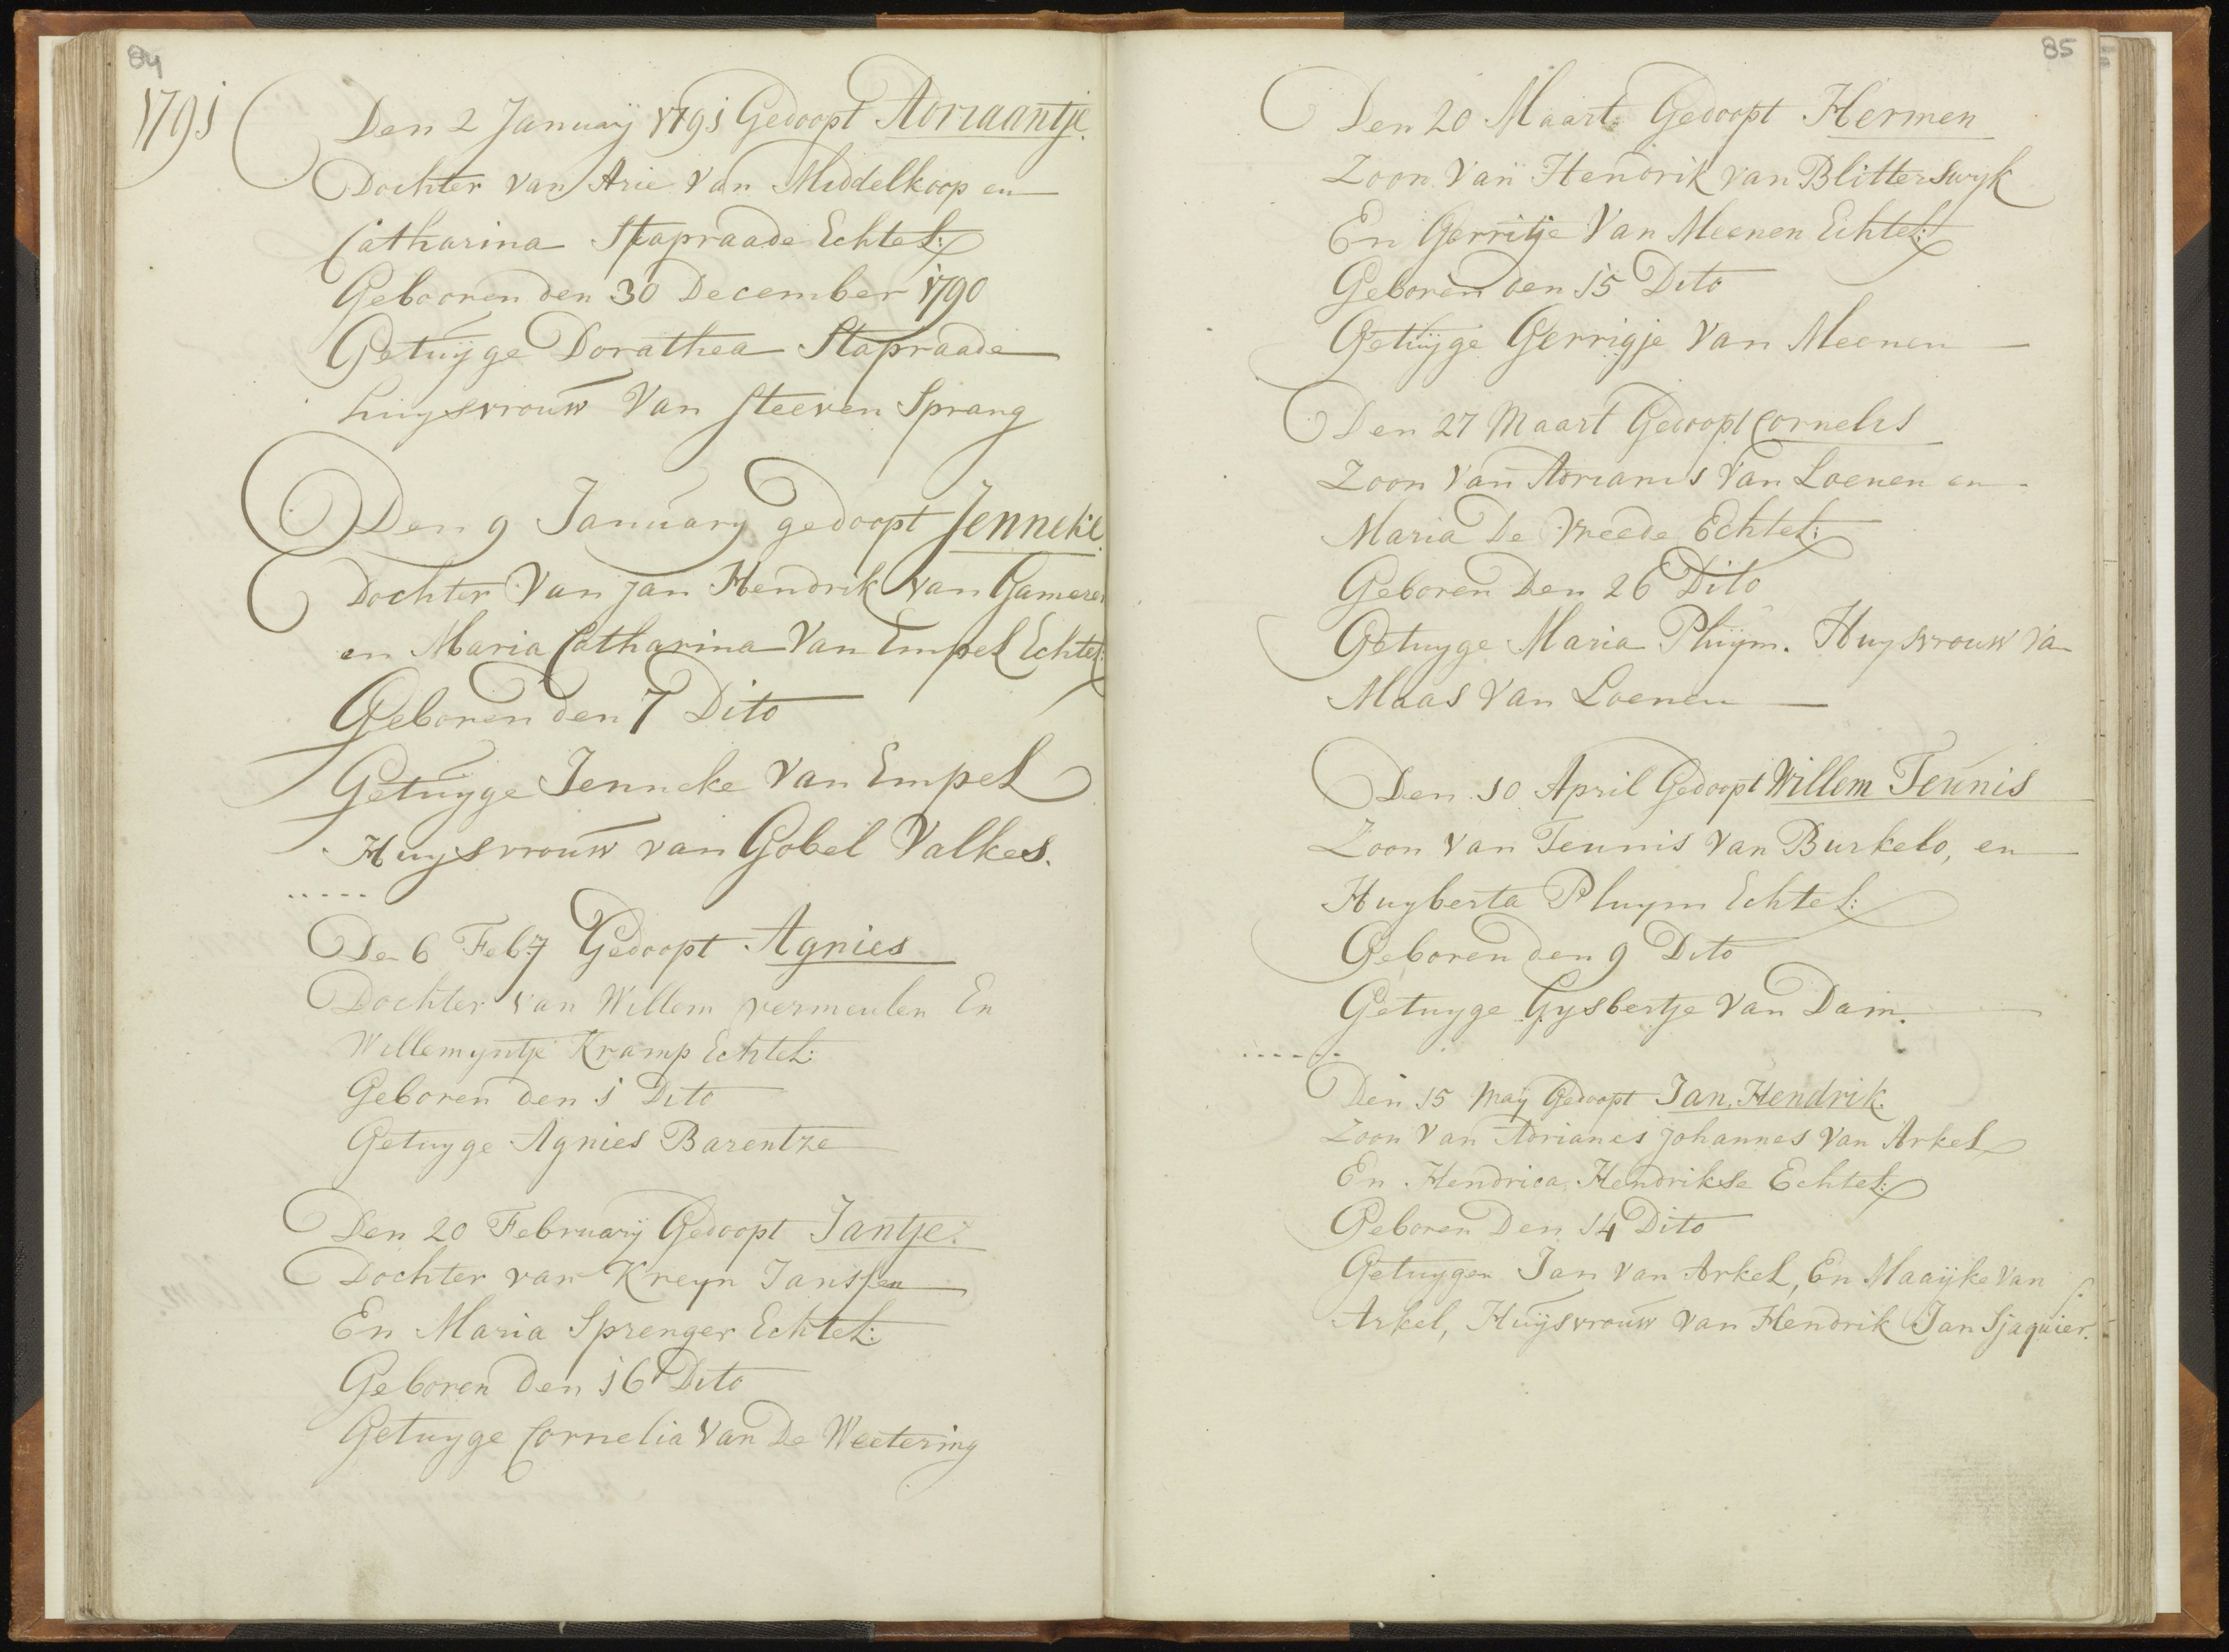 84
1791
Den 2 Januarij 1791 Gedoopt Adriaantje.
Dochter van Arie van Middelkoop en
Catharina Stapraade Echtel:
Gebooren den 30 December 1790
Getuijge Dorathea Stapraade
huijsvrouw Van Steeven Sprang
Den 9 January gedoopt Jenneke
Dochter Van Jan Hendrik van Gameren
en Maria Catharina Van Empel Echtel:
Geboren den 7 Dito
Getuijge Jenneke Van Empel
Huijsvrouw van Gobel Valkes.
.....
De 6 Feb:ij Gedoopt Agnies
Dochter van Willem vermeulen En
Willemyntje Kramp Echtel:
Geboren den 1 Dito
Getuyge Agnies Barentze
Den 20 Februarij Gedoopt Jantje.
Dochter van Kreyn Janssen
En Maria Sprenger Echtel:
Geboren den 16 Dito
Getuyge Cornelia Van De Weetering
85
Den 20 Maart: Gedoopt Hermen
Zoon Van Hendrik van Blitterswyk
En Gerritje Van Meenen Echtel:
Geboren den 15 Dito
Getuijge Gerrigje Van Meenen
Den 27 Maart Gedoopt Cornelis
Zoon Van Adrianus Van Loenen en
Maria De Vreede Echtel:
Geboren Den 26 Dito
Getuyge Maria Pluijm. Huysvrouw Van
Maas Van Loenen
Den 10 April Gedoopt Willem Teunis
Zoon van Teunis Van Burkelo, en
Huyberta Pluym Echtel:
Geboren den 9 Dito
Getuyge Gysbertje Van Dam.
......
Den 15 Maij Gedoopt Jan Hendrik.
Zoon Van Adrianes Johannes Van Arkel
En Hendrica Hendrikse Echtel:
Geboren Den 14 Dito
Getuygen Jan van Arkel, En Maaijke Van
Arkel, Huijsvrouw van Hendrik Jan Sjaquier.